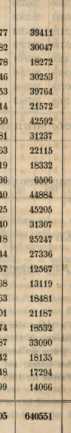 77 39411
82 30047
78 18272
46 30253
53 39764
14 21572
50 42592
81 31237
63 22115
19 18332
36 6506
40 44884
25 45205
40 31307
18 25247
44 27336
57 12567
68 13119
63 18481
01 21187
74 18532
87 33090
42 18135
48 17294
99 14066
05 640551